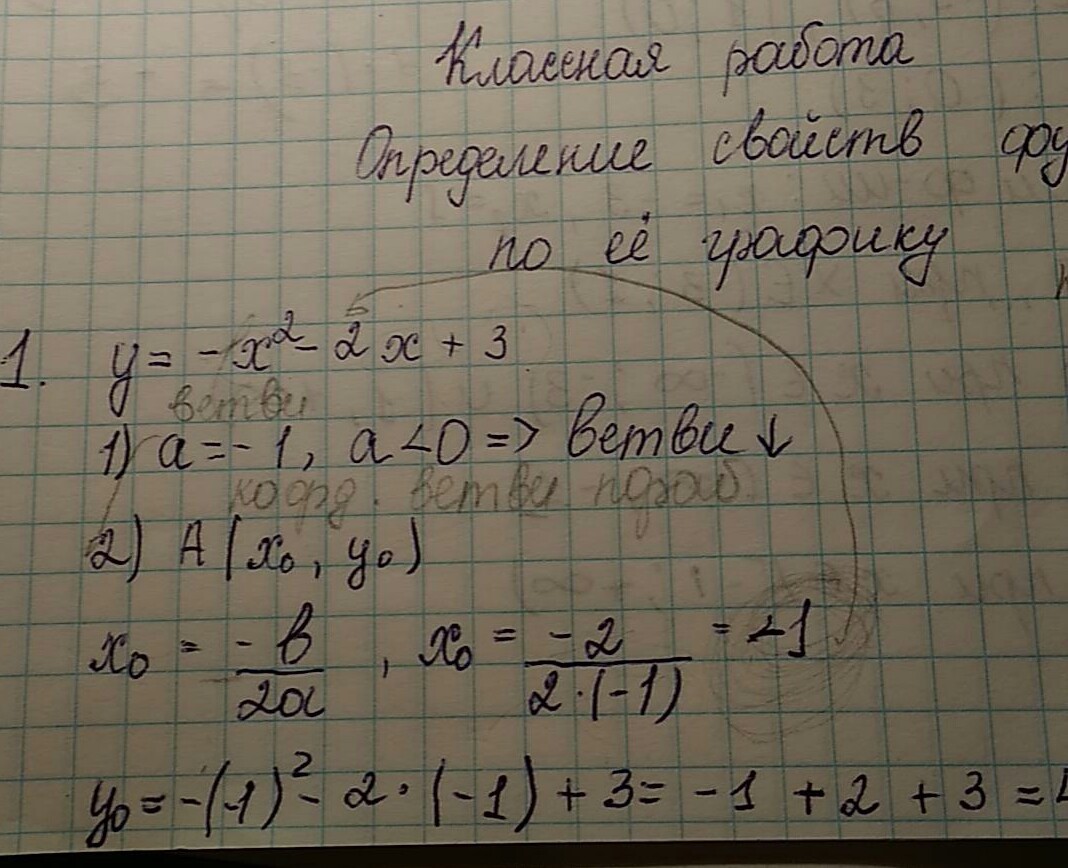 Классная работа
Определение свойств фу
по её графику
1. y = -x² - 2x + 3
ветви
1) a = -1, a < 0 => ветви ↓
коорд. ветви параб.
2) A(x₀, y₀)
x₀ = -b/2a, x₀ = -2/2·(-1) = -1
y₀ = -(-1)² - 2·(-1) + 3 = -1 + 2 + 3 = 4